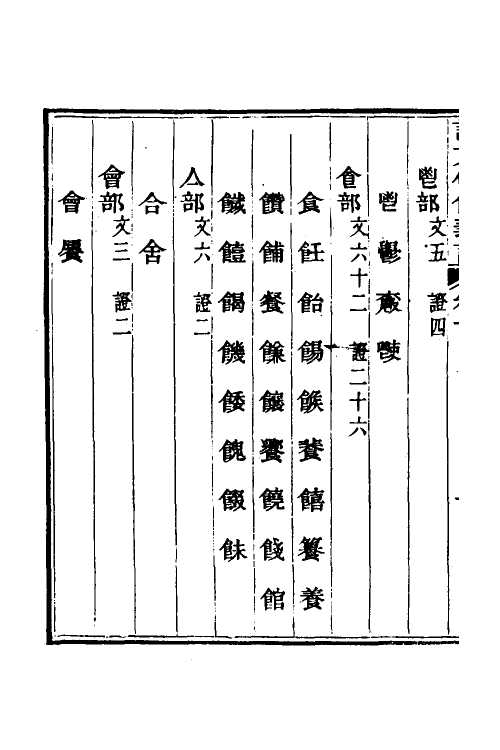 鬯部文五 證四
鬯鬱
𠊊部文六十二 證二十六
食飪飴餳餱餥饎籑養
饡餔餐饟饗饒餞館
餼饐餲饑餧餽餟餗
亼部文六 證二
合舍
會部文三 證二
會